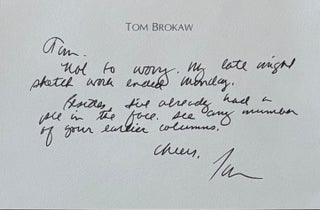 TOM BROKAW
Tom.
Not to worry. My late night
sketch work ended Monday.
Besides I've already had a
pie in the face. See any number
of your earlier columns.
Cheers,
Tom